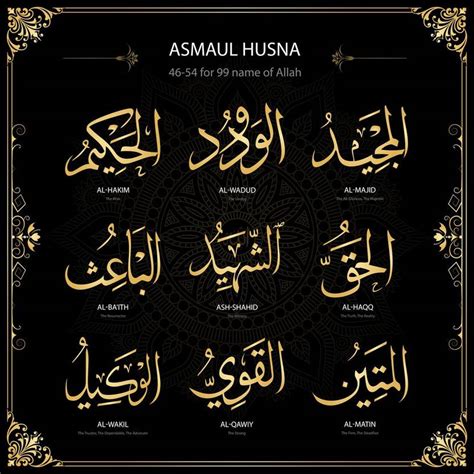 ASMAUL HUSNA
46-54 for 99 name of Allah
الحكيم
الودود
المجيد
AL-HAKIM
AL-WADUD
AL-MAJID
The Wise
The Loving
The All-Glorious, The Majestic
الباعث
الشهيد
الحق
AL-BA'ITH
ASH-SHAHID
AL-HAQQ
The Resurrector
The Witness
The Truth, The Reality
الوكيل
القوي
المتين
AL-WAKIL
AL-QAWIY
AL-MATIN
The Trustee, The Dependable, The Advocate
The Strong
The Firm, The Steadfast